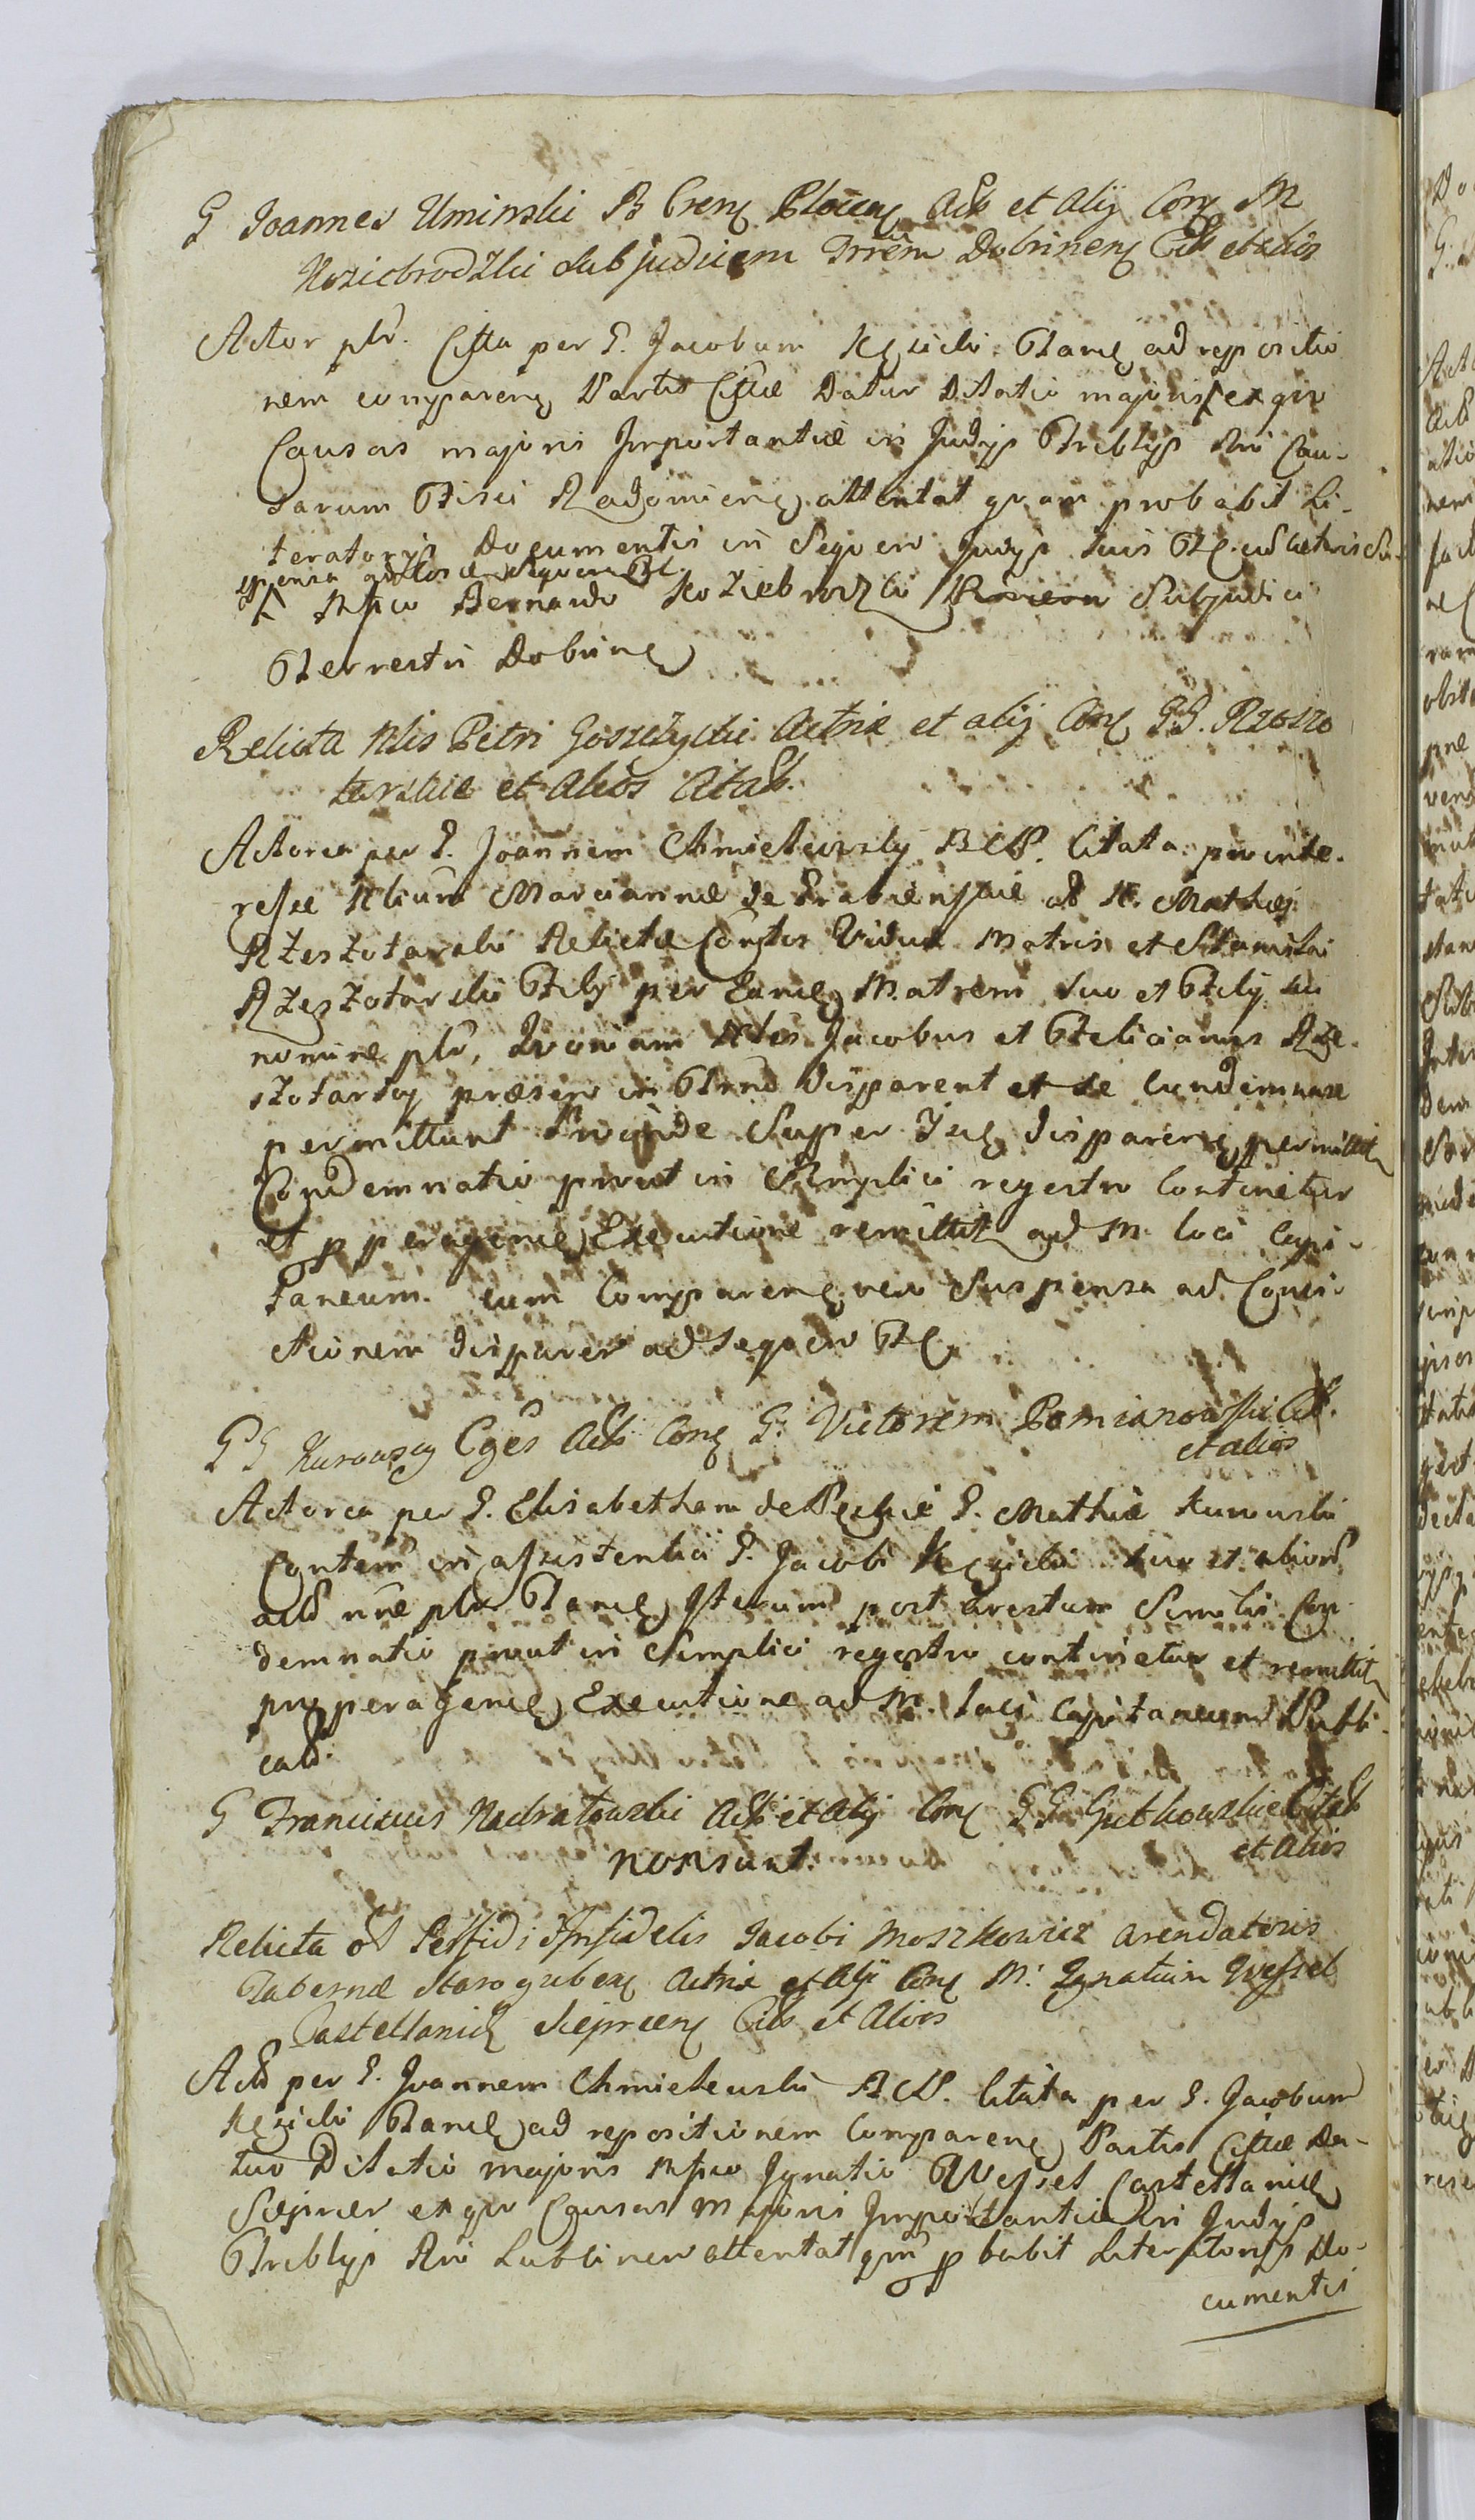 G Joannes Uminski B Crens Plocens Actr et Alij Cons M
Koziebrodzki Subjudicem Trrem Dobrinens Citt et alios
Actor pltr. Citta per G. Jacobum Kęsicki Thane ad repositio
nem comparens Partis Cittae Datur Dilatio majoris / ex quo
Causas majoris Importantiae in Judijs Thriblijs Rni Cau-
sarum Fisci Radomiens attentat quam probabit Li-
teratorijs Documentis in Sequen Judijs suis Tr. cu caeteris Su-
spensa ad hos e Sequen Tr.
/ Mfico Bernardo Koziebrodzki Subjudici
Terrestri Dobrins
Relicta Nlis Petri Goszczycki Actrix et alij Cons GG. Rzeszo
tarskie et Alios Citatt.
Actorea per G. Joannem Chmielewsky BCP. Citata pro inte-
resse Nlium Mariannae de Grabienskie olt N. Mathiej
Rzeszotarski Relictae Consortis Viduae Matris et Stanislai
Rzeszotarski Filij per Eande Matrem suo et Filij sui
nomine pltr, Quoniam Nles Jacobus et Felicianus Rze-
szotarscy praesen in Trno disparent et se Condemnare
permittunt Proinde Super Jus disparens permittit
Condemnatio prout in Simplici regestro Continetur
et pro peragenda Executione remittit ad M. loci Capi-
taneum. cum Comparens vero Suspensa ad Convi-
ctionem disparen ad sequen Tr.
GG Kurowscy Cges Actr Cons G. Victorem Pomianowski Citt.
et alios
Actorea per G. Elisabetham de Peckie G. Mathiae Kurowski
Contem in assistentia G. Jacobi Kęsicki suo et aliord
actd nne pltr Thane Iterum post arestum Similis Con-
demnatio prout in Simplici regestro continetur et remittit
pro peragenda Executione ad M. loci Capitaneum Publi-
catd.
G Franciscus Nadratowski Actr et Alij Cons GG Gutkowskie Citatt
et Alios
non sunt.
Relicta olt Perfidi Infidelis Jacobi Moszkowicz arendatoris
Tabernae Starogubens Actrix et Alij Cons M. Ignatium Wessel
Castellanid Sieprcens Citt et Alios
Actd per G. Joannem Chmielewski BCP. Citata per G. Jacobum
Kęsicki Thane ad repositionem Comparens Partis Cittae Da-
tur Dilatio majoris Mfico Ignatio Wessel Castellanid
Sieprcen ex quo Causas majoris Importantiae in Judijs
Thriblijs Rni Lublinen attentat qm probabit Literatorijs Do-
cumentis